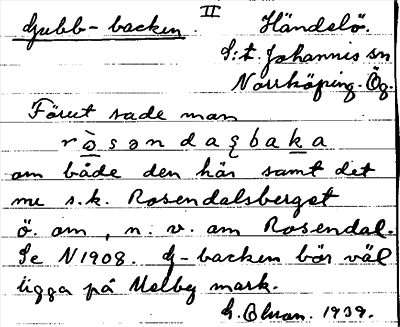 II
Gubb-backen. Händelö.
S:t Johannis sn
Norrköping. Ög.
Förut sade man
om både den här samt det
nu s.k. Rosendalsberget
ö. om, n. v. om Rosendal.
Se N1908. G-backen bör väl
ligga på Melby mark.
1939.